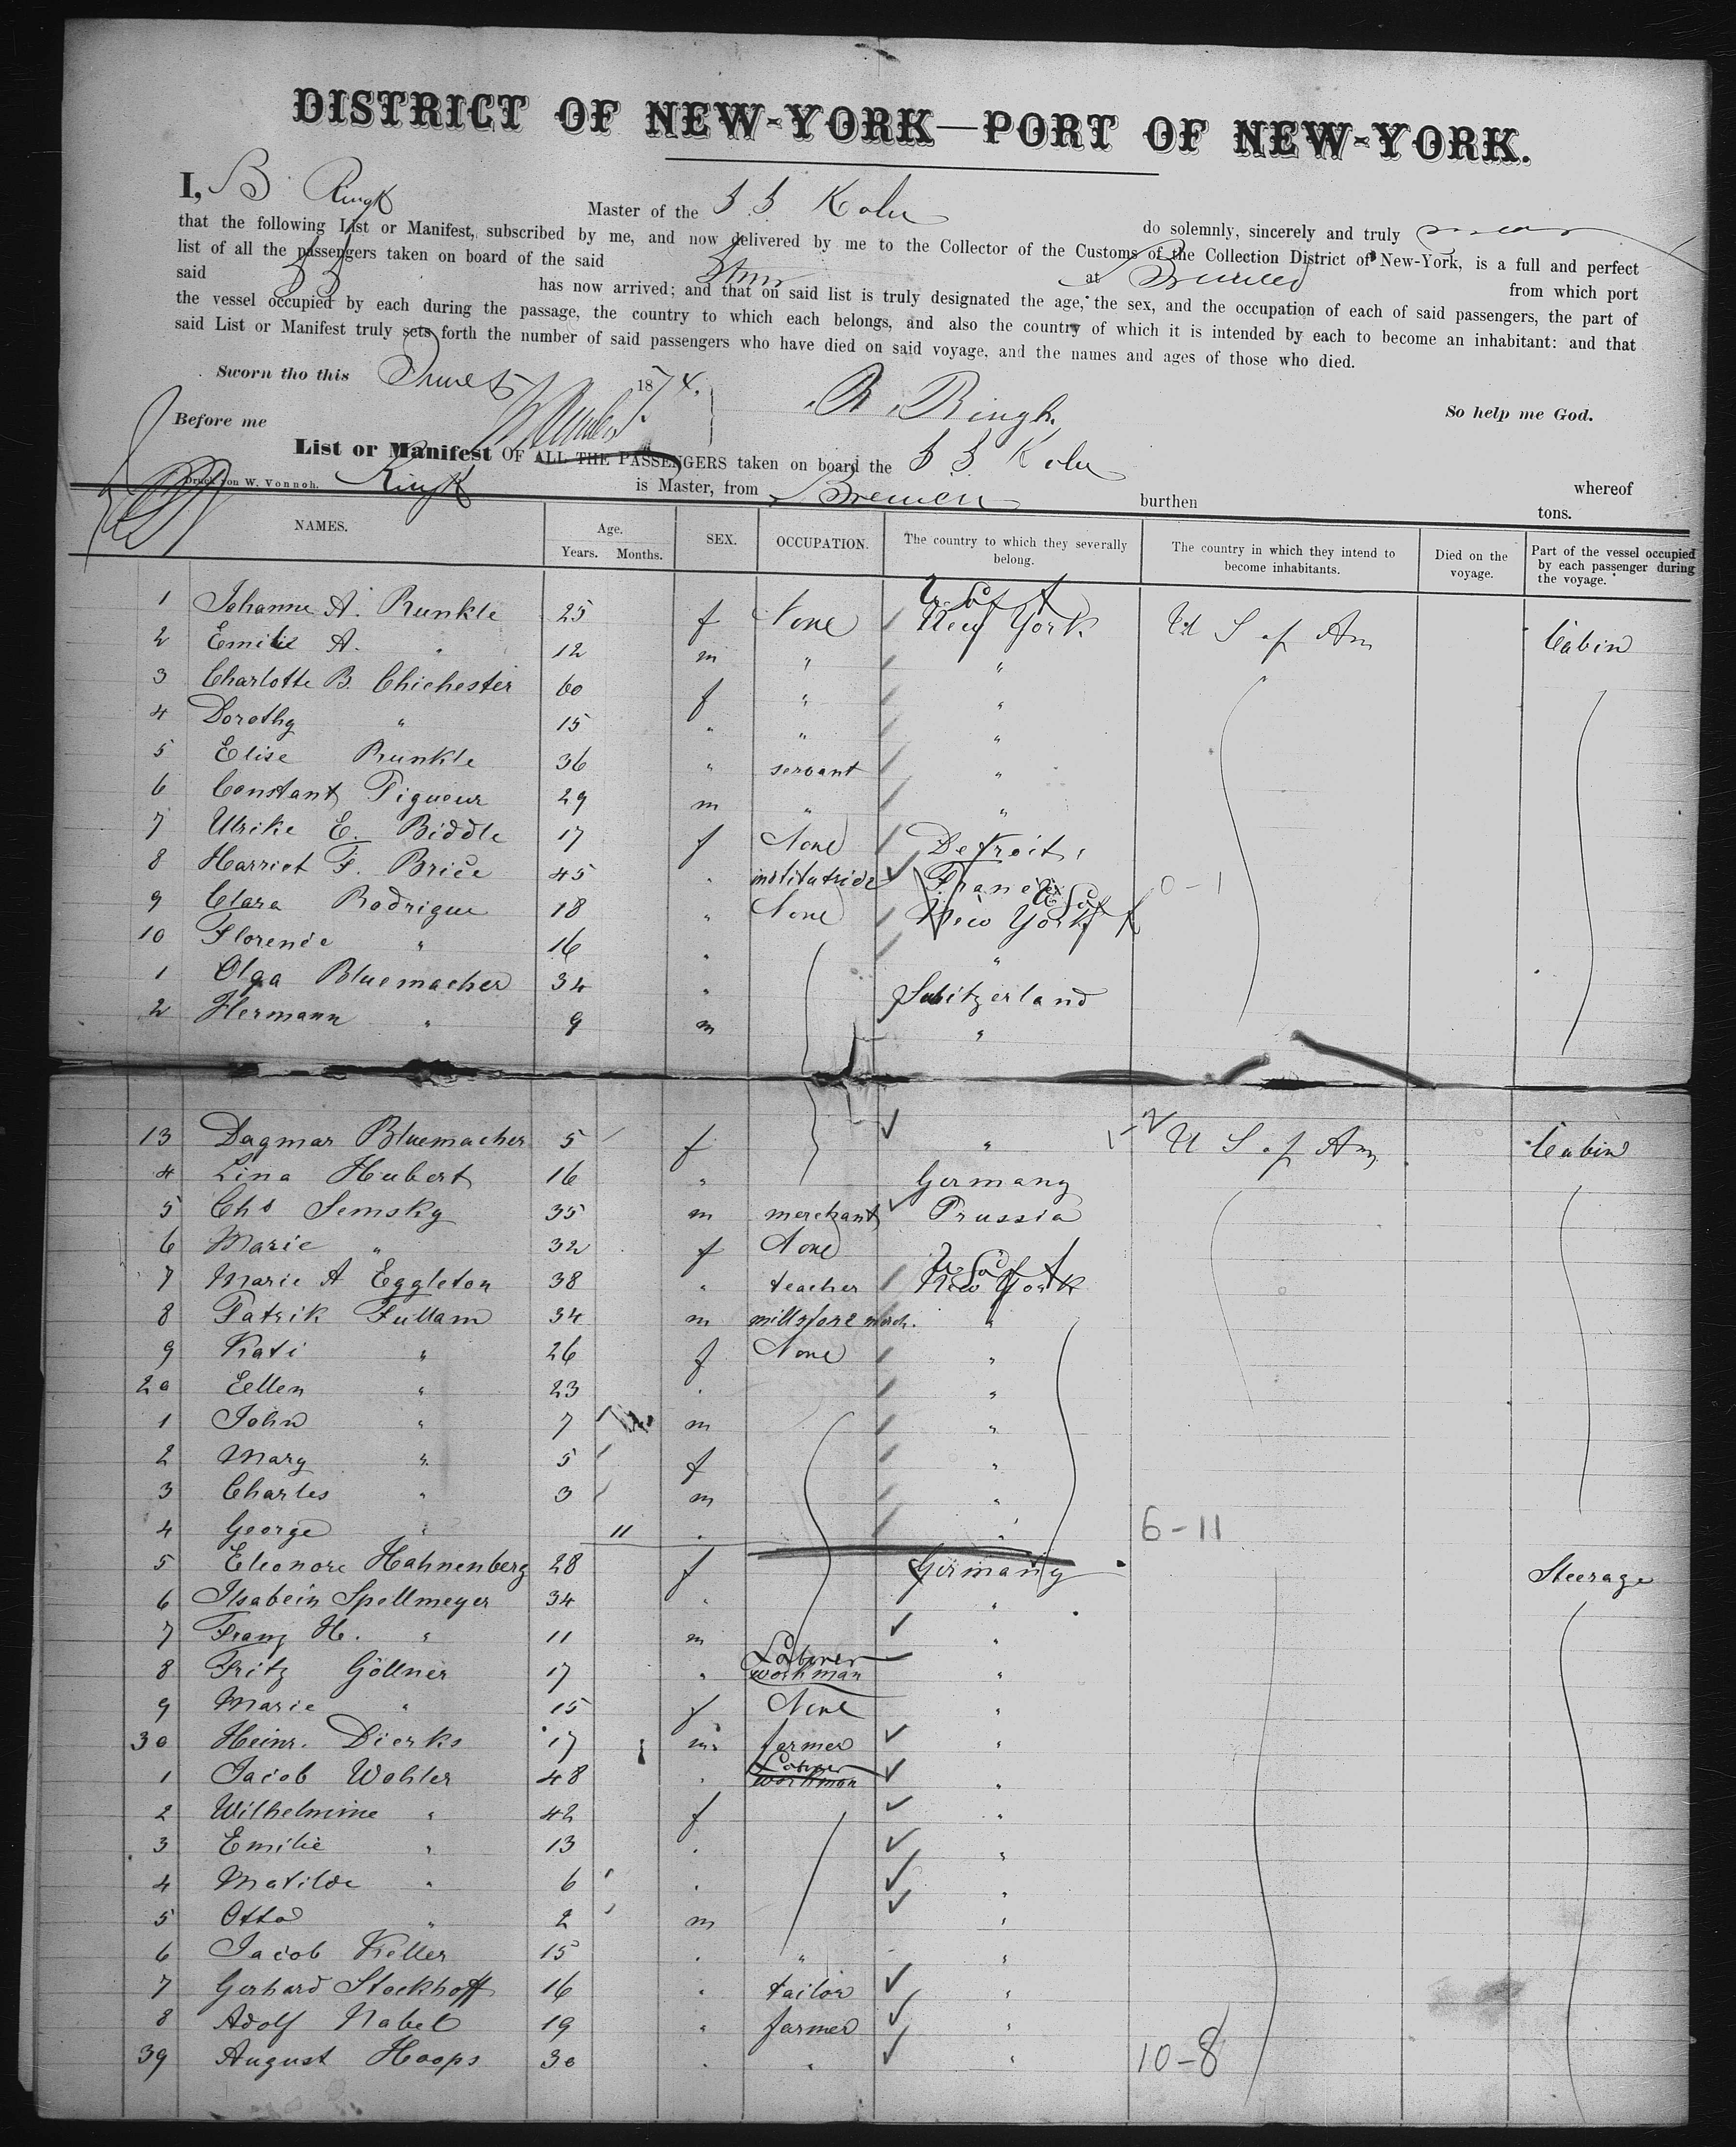 DISTRICT OF NEW-YORK—PORT OF NEW-YORK.
I, B. Ringk Master of the S S Koln do solemnly, sincerely and truly swear
that the following List or Manifest, subscribed by me, and now delivered by me to the Collector of the Customs of the Collection District of New-York, is a full and perfect
list of all the passengers taken on board of the said SS at Bremen from which port
said SS has now arrived; and that on said list is truly designated the age, the sex, and the occupation of each of said passengers, the part of
the vessel occupied by each during the passage, the country to which each belongs, and also the country of which it is intended by each to become an inhabitant: and that
said List or Manifest truly sets forth the number of said passengers who have died on said voyage, and the names and ages of those who died.
Sworn tho this June 1874. B. Ringk So help me God.
Before me
List or Manifest OF ALL THE PASSENGERS taken on board the S S Koln whereof
Druck von W. Vonnoh. Ringk is Master, from Bremen burthen tons.
NAMES. Age. Years. Months. SEX. OCCUPATION. The country to which they severally belong. The country in which they intend to become inhabitants. Died on the voyage. Part of the vessel occupied by each passenger during the voyage.
U S of A
1 Johanne A. Runkle 25 f None New York U S of Am Cabin
2 Emilie A. " 12 m " "
3 Charlotte B. Chichester 60 f " "
4 Dorothy " 15 " " "
5 Elise Runkle 36 " servant "
6 Constant Piqueur 29 m " "
7 Ulrike E. Biddle 17 f None Detroit
8 Harriet F. Brice 45 " institutrice France 0-1
U S of A
9 Clara Rodrigue 18 " None New York
10 Florence " 16 " "
1 Olga Bluemacher 34 " Switzerland
2 Hermann " 9 m "
13 Dagmar Bluemacher 5 f " 1-2 U S of Am Cabin
4 Lina Hubert 16 " Germany
5 Chs Semsky 35 m merchant Prussia
6 Marie " 32 f None
U S of A
7 Marie A Eggleton 38 " teacher New York
8 Patrik Fullam 34 m "
9 Kati " 26 f None "
20 Eellen " 23 " "
1 John " 7 m "
2 Mary " 5 f "
3 Charles " 3 m "
4 George " 11 " " 6-11
5 Eleonore Hahnenberg 28 f Germany Steerage
6 Ilsabein Spellmeyer 34 " "
7 Franz H. " 11 m "
Laborer
8 Fritz Göllner 17 " workman "
9 Marie " 15 f None "
30 Heinr. Dierks 17 m farmer "
Laborer
1 Jacob Wohler 48 " workman "
2 Wilhelmine " 42 f "
3 Emilie " 13 " "
4 Matilde " 6 " "
5 Otto " 2 m "
6 Jacob Keller 15 " " "
7 Gerhard Stockhoff 16 " tailor "
8 Adolf Nabel 19 " farmer "
39 August Hoops 30 " " " 10-8